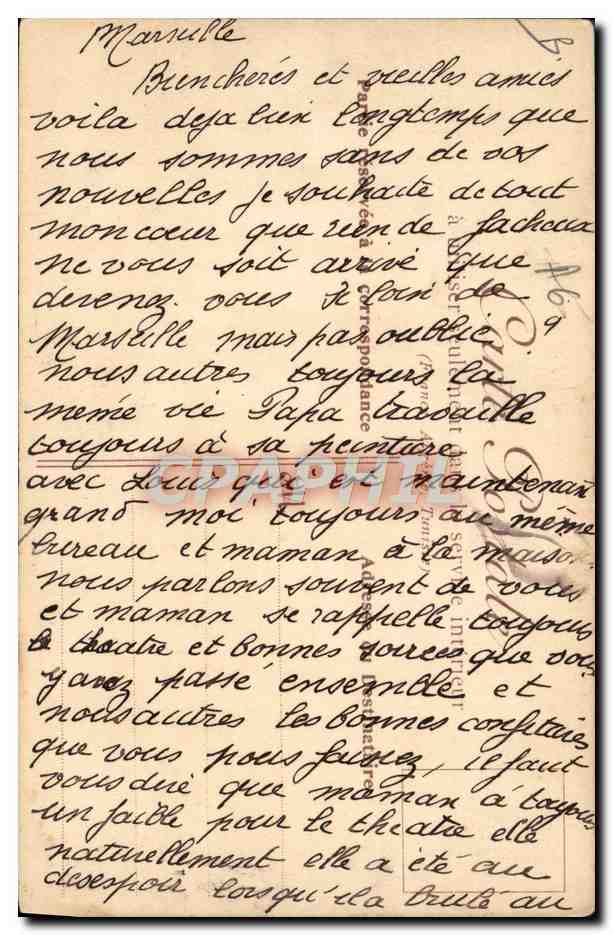 Marseille
Bien chéres et vieilles amies
voila deja bien longtemps que
nous sommes sans de vos
nouvelles je souhaite de tout
mon cœur que rien de facheux
ne vous soit arrivé que
devenez-vous si loin de
Marseille mais pas oublié
nous autres toujours la
meme vie Papa travaille
toujours à sa peinture
avec Louis qui est maintenant
grand moi toujours au même
bureau et maman à la maison
nous parlons souvent de vous
et maman se rappelle toujours
le theatre et bonnes soirees que vous
y avez passé ensemble et
nous autres les bonnes confitures
que vous nous faisiez, il faut
vous dire que maman à toujours
un faible pour le theatre elle
naturellement elle a été au
desespoir lorsqu'il a brulé au
Carte Postale
à utiliser seulement dans le service intérieur
(France, Algérie, Tunisie)
Partie réservée à la correspondance
Adresse du Destinataire
CPAPHIL